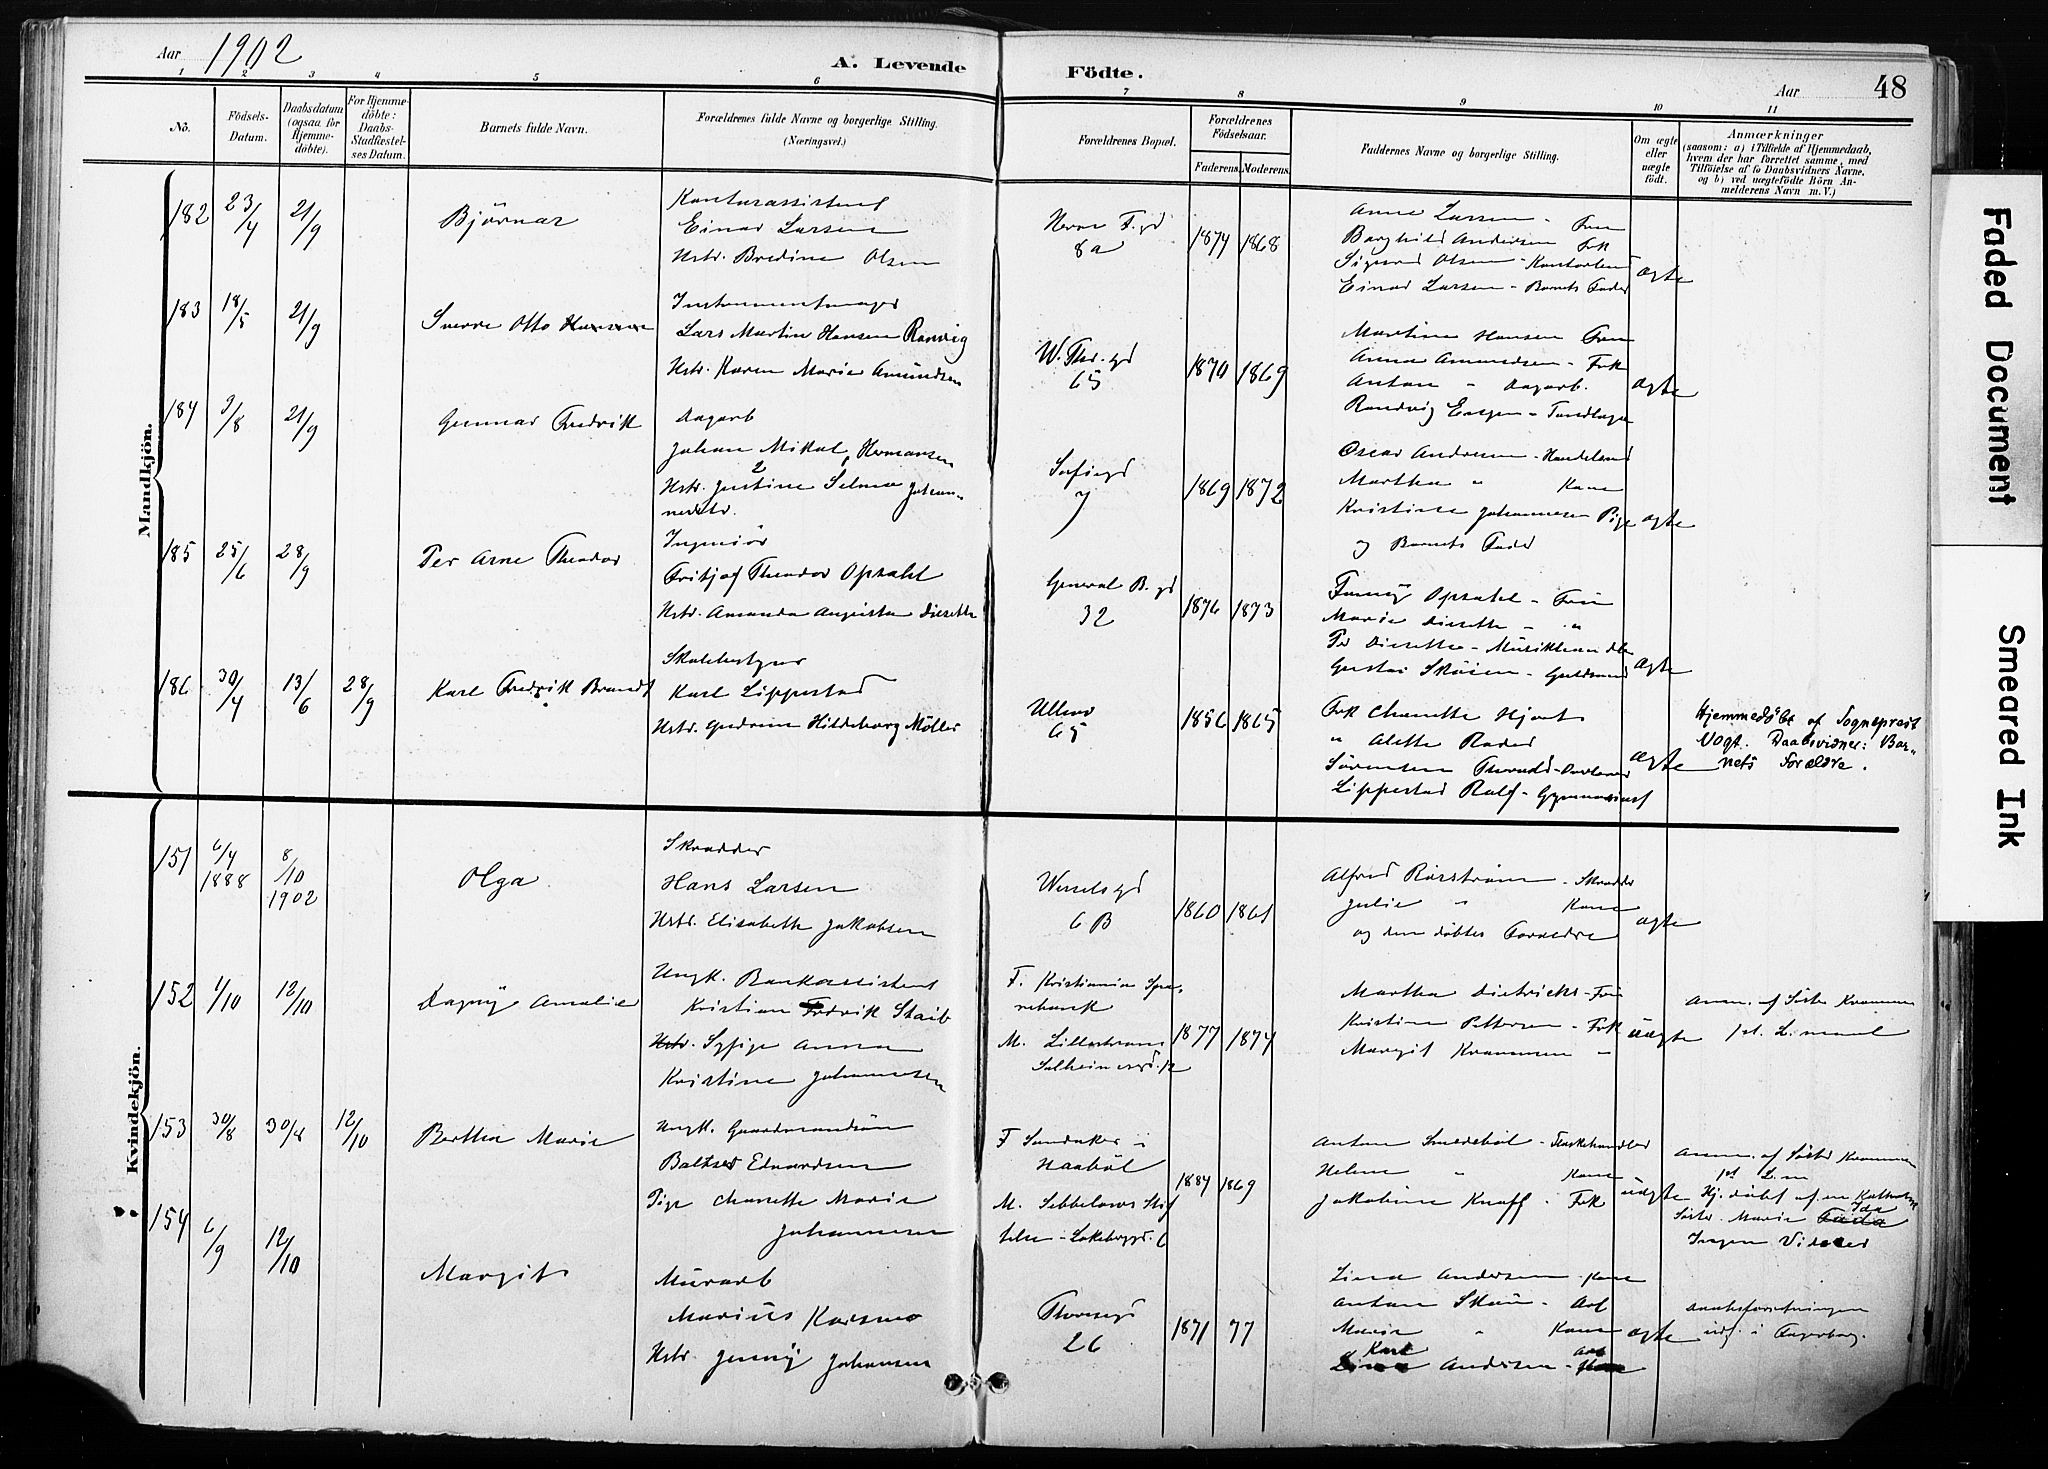 Aar 1902
A. Levende Födte.
Aar 48
1 2 3 4 5 6 7 8 9 10 11
No.
Födsels-
Datum.
Daabsdatum
(ogsaa for
Hjemme-
döbte).
For Hjemme-
döbte:
Daabs-
Stadfæstel-
ses Datum.
Barnets fulde Navn.
Forældrenes fulde Navne og borgerlige Stilling.
(Næringsvei.)
Forældrenes Bopæl.
Forældrenes
Födselsaar.
Faderens. Moderens.
Faddernes Navne og borgerlige Stilling.
Om ægte
eller
uægte
födt.
Anmærkninger
(saasom: a) i Tilfælde af Hjemmedaab,
hvem der har forrettet samme, med
Tilföielse af to Daabsvidners Navne,
og b) ved uægtefödte Börn An-
melderens Navn m. V.)
Mandkjön.
182 23/4 21/9 Björnar
Kontorassistent
Einar Larsen
Hstr. Bredine Olsen
8a
1874 1868
Anna Larsen - Frue
Borghild Andersen Frk
Sigurd Olsen - Kontorbud
Einar Larsen - Barnets Fader
ægte
183 18/5 21/9 Sverre Otto
Instrumentmager
Lars Martin Hansen Ranvig
Hstr. Karen Marie Amundsen
W. Thr. gd
65
1870 1869
Martine Hansen Frue
Anna Amundsen - Frk
Anton " Dagarb.
ægte
184 9/8 21/9 Gunnar Fredrik
Dagarb
Johan Mikal Hermansen
Hstr. Justine Selma Johan-
nesdtr.
Sofiegd
7
1869 1872
Oscar Andersen - Handelsmd
Martha " Kone
Kristine Johannesen Pige
og Barnets Fader
ægte
185 25/6 28/9 Per Arne Theodor
Ingeniör
Fritjof Theodor Opsahl
Hstr. Amanda Augusta Diesette
General B. gd
32
1876 1873
Fanny Opsahl - Frue
Marie Diesette - "
Per Diesette - Musikhandler
Gustav Sköien - Guldsmed
ægte
186 30/4 13/6 28/9 Karl Fredrik Brandt
Skolebestyrer
Karl Lippestad
Hstr. Gudrun Hildeborg Möller
Ullevv
65
1856 1865
Frk Chanette Hjort
" Alette Roder
Lippestad Rolf - Gymnasiast
ægte
Hjemmedöbt af Sognepræst
Vogt. Daabsvidner: Bar-
nets Forældre.
Kvindekjön.
151 6/4 1888 8/10 1902 Olga
Skrædder
Hans Larsen
Hstr. Elisabeth Jakobsen
Wesselsgd
6 B
1860 1861
Alfred Rörström - Skrædder
Julie " Kone
og den döbtes Forældre
ægte
152 1/10 12/10 Dagny Amalie
Ungk. Bankassistent
Kristian Fredrik Staib
Sypige Anna
Kristine Johannesen
F. Kristiania Spa-
rebank
M. Lilleströms
1877 1874
Martha Dietricks - Frue
Kristine Pettersen - Frk
Margit Krammen - "
uægte
Anm. af Söster Krammen
153 30/8 30/8 12/10 Bertha Marie
Ungk. Gaardmandssön
Baltser Edvardsen
Pige Chanette Marie
Johannesen
F Sandaker i
Haaböl
M. Sebbelows Stif
telse - Lakkegd. 6
1884 1869
Anton Smedeböl - Flaskehandler
Helene " Kone
Jakobine Knoff - Frk
uægte
Anm. af Söster Krammen
Hj. döbt af en Katholsk
Söster Marie Ida
Ingen Vidner
154 6/9 12/10 Margit
Murarb
Marius Karsmo
Hstr. Jenny Johansen
Thoresgd
26
1871 77
Lina Andersen Kone
Anton Skau - Arb
Marie " Kone
Karl Andersen - Arb
ægte
Daabsforretningen
udf. i Fagerborg.
Faded Document
Smeared Ink